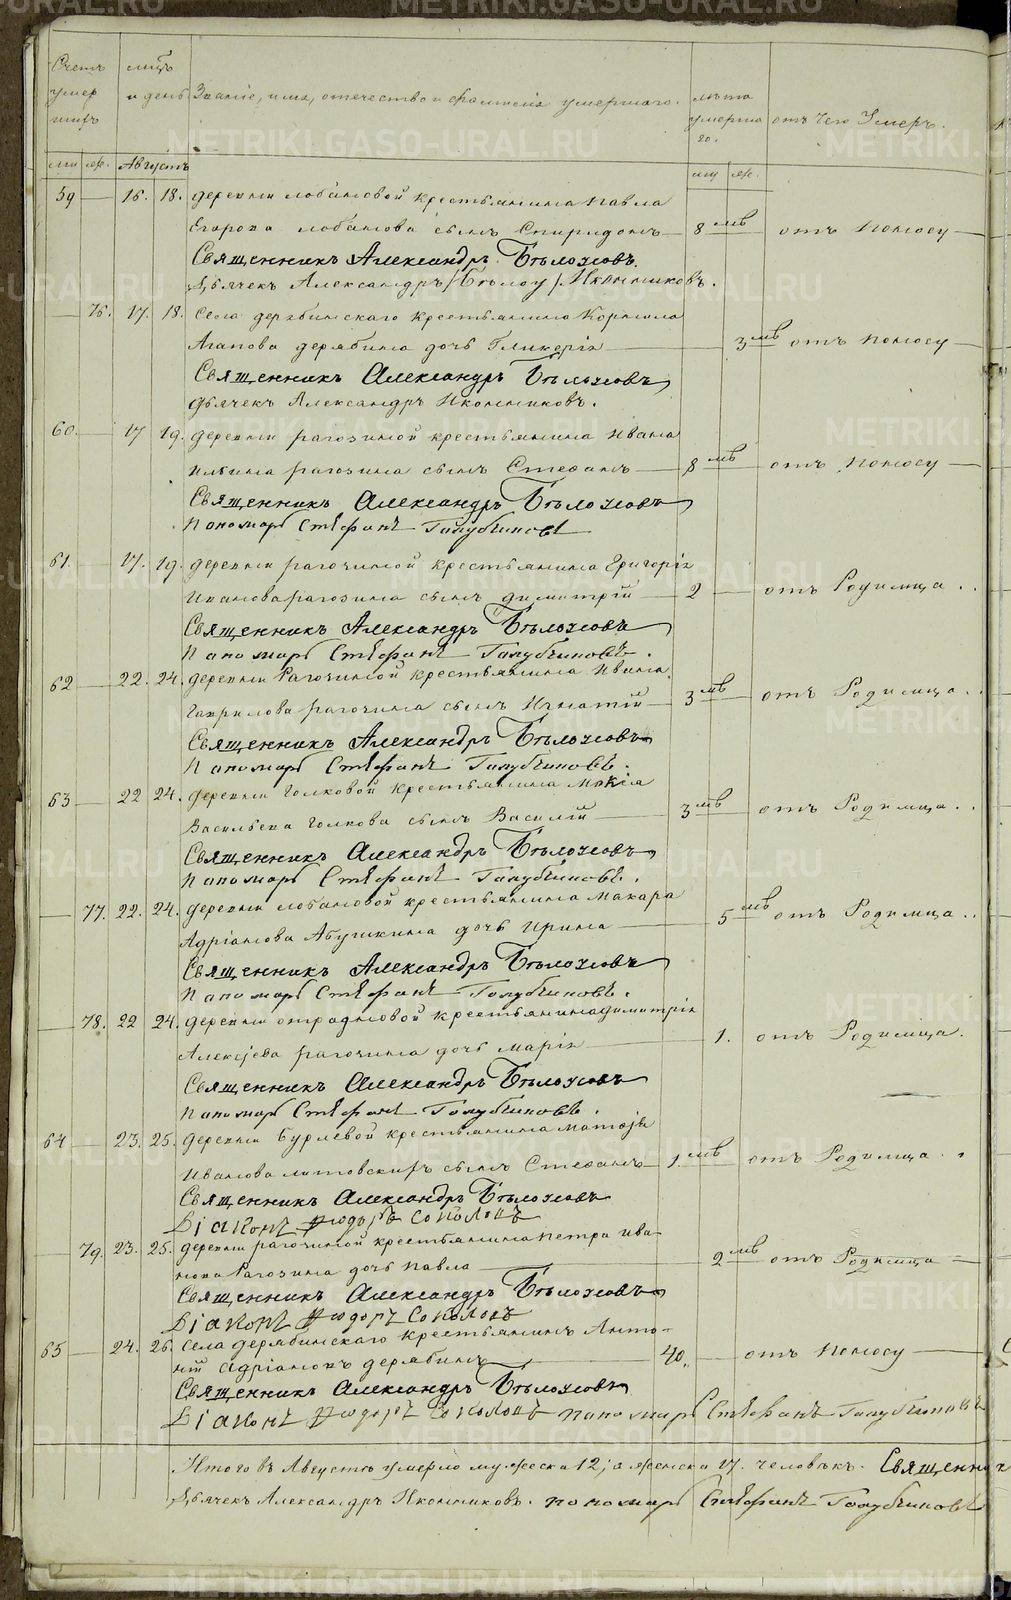 METRIKI.GASO-URAL.RU
Счетъ умер шихъ
мцъ и день
Званіе, имя, отечество и фамилія умершаго.
лѣта умерша го.
отъ чего Умеръ.
му же. Августъ му же.
59 — 16. 18. деревни лобановой крестьянина Павла
Егорова лобанова сынъ Спиридонъ — 8 мѣ — отъ поносу —
Священникъ Александръ Бѣлоусовъ.
Дьячекъ Александръ Иконниковъ.
— 76. 17. 18. села дерябинскаго крестьянина Корнила
Агапова дерябина дочь Гликерія — 3 мѣ отъ поносу —
Священникъ Александръ Бѣлоусовъ
дьячекъ Александръ Иконниковъ.
60 — 17 19. деревни рагозиной крестьянина Ивана
Ильина рагозина сынъ Стефанъ — 8 мѣ — отъ поносу —
Священникъ Александръ Бѣлоусовъ
Пономарь Стефанъ Голубчиковъ
61. — 17. 19. деревни рагозиной крестьянина Григорія
Иванова рагозина сынъ димитрій — 2 — отъ Родимца ..
Священникъ Александръ Бѣлоусовъ
Пономарь Стефанъ Голубчиковъ.
62 — 22. 24. деревни Рагозиной крестьянина Ивана
Гаврилова рагозина сынъ Игнатій — 3 мѣ — отъ Родимца ..
Священникъ Александръ Бѣлоусовъ
Пономарь Стефанъ Голубчиковъ.
63 — 22 24. деревни Голковой крестьянина Мокія
Васильева Голкова сынъ Василій — 3 мѣ — отъ Родимца ..
Священникъ Александръ Бѣлоусовъ
Пономарь Стефанъ Голубчиковъ.
— 77. 22. 24. деревни лобановой крестьянина Макара
Адріанова Абушкина дочь Ирина — 5 мѣ отъ Родимца ..
Священникъ Александръ Бѣлоусовъ
Пономарь Стефанъ Голубчиковъ.
— 78. 22 24. деревни отрадновой крестьянина димитрія
Алексѣева рагозина дочь Марія — 1. отъ Родимца.
Священникъ Александръ Бѣлоусовъ
Пономарь Стефанъ Голубчиковъ.
64 — 23. 25. деревни Бурлевой крестьянина Матѳѣя
Иванова литовскихъ сынъ Стефанъ — 1. мѣ отъ Родимца ..
Священникъ Александръ Бѣлоусовъ
Діаконъ Ѳеодоръ Соколовъ
— 79. 23. 25. деревни рагозиной крестьянина Петра Ива
нова Рагозина дочь Павла — 2 мѣ отъ Родимца —
Священникъ Александръ Бѣлоусовъ
Діаконъ Ѳеодоръ Соколовъ
65 — 24. 26. села дерябинскаго крестьянинъ Анто-
ній Адріановъ дерябинъ — 40. — отъ поносу —
Священникъ Александръ Бѣлоусовъ
Діаконъ Ѳеодоръ Соколовъ пономарь Стефанъ Голубчиковъ
Итого въ Августѣ умерло мужеска 12, а женска 17. человѣкъ. Священник
Дьячекъ Александръ Иконниковъ. пономарь Стефанъ Голубчиковъ